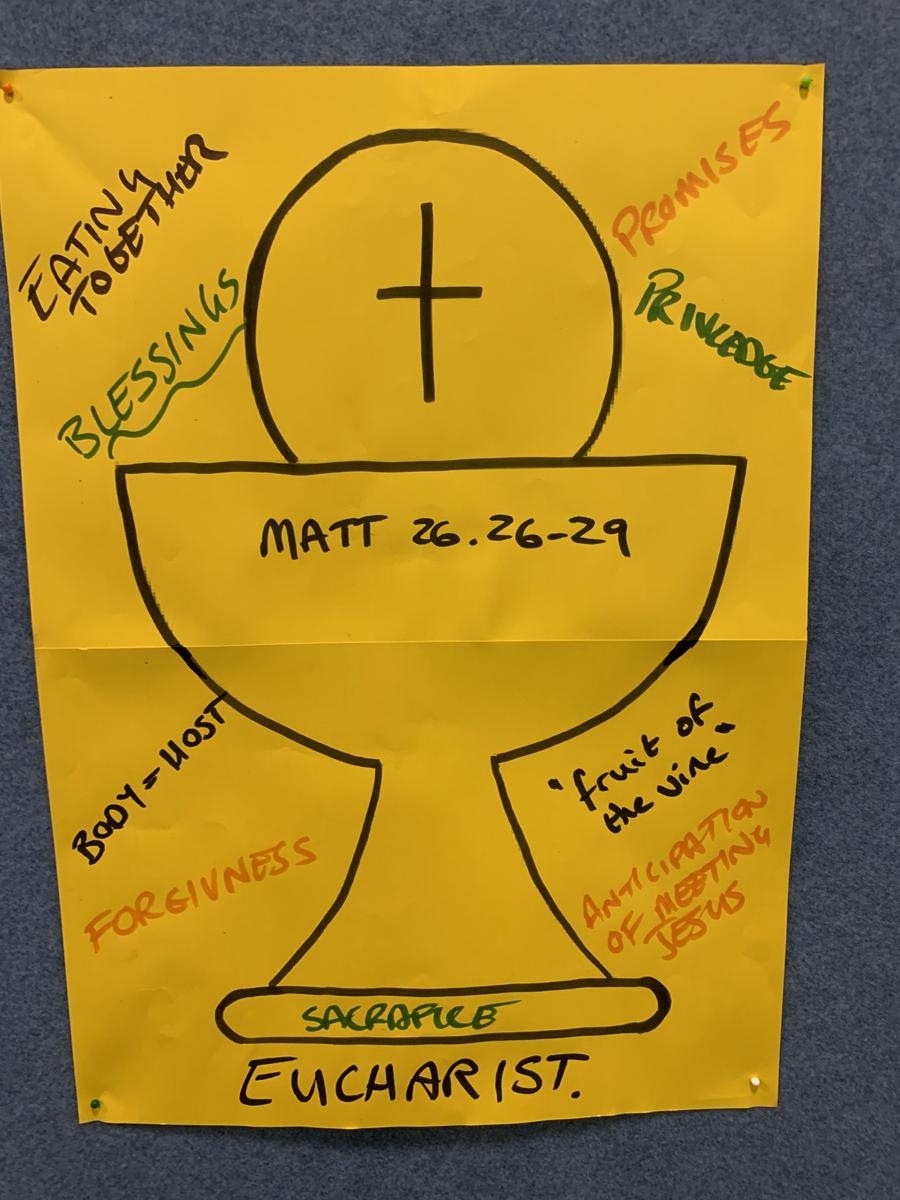 EATING
TOGETHER
PROMISES
BLESSINGS
PRIVLEDGE
MATT 26.26-29
BODY = HOST
"fruit of
the vine"
FORGIVNESS
ANTICIPATION
OF MEETING
JESUS
SACRAFICE
EUCHARIST.